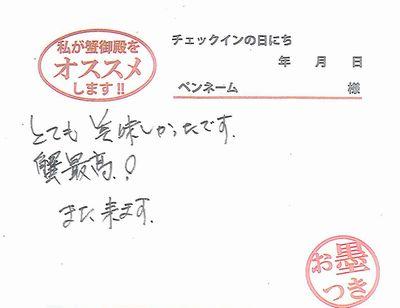 私が蟹御殿を
オススメ
します!!
チェックインの日にち
年 月 日
ペンネーム 様
とても美味しかったです.
蟹最高!
また来ます.
お墨
つき